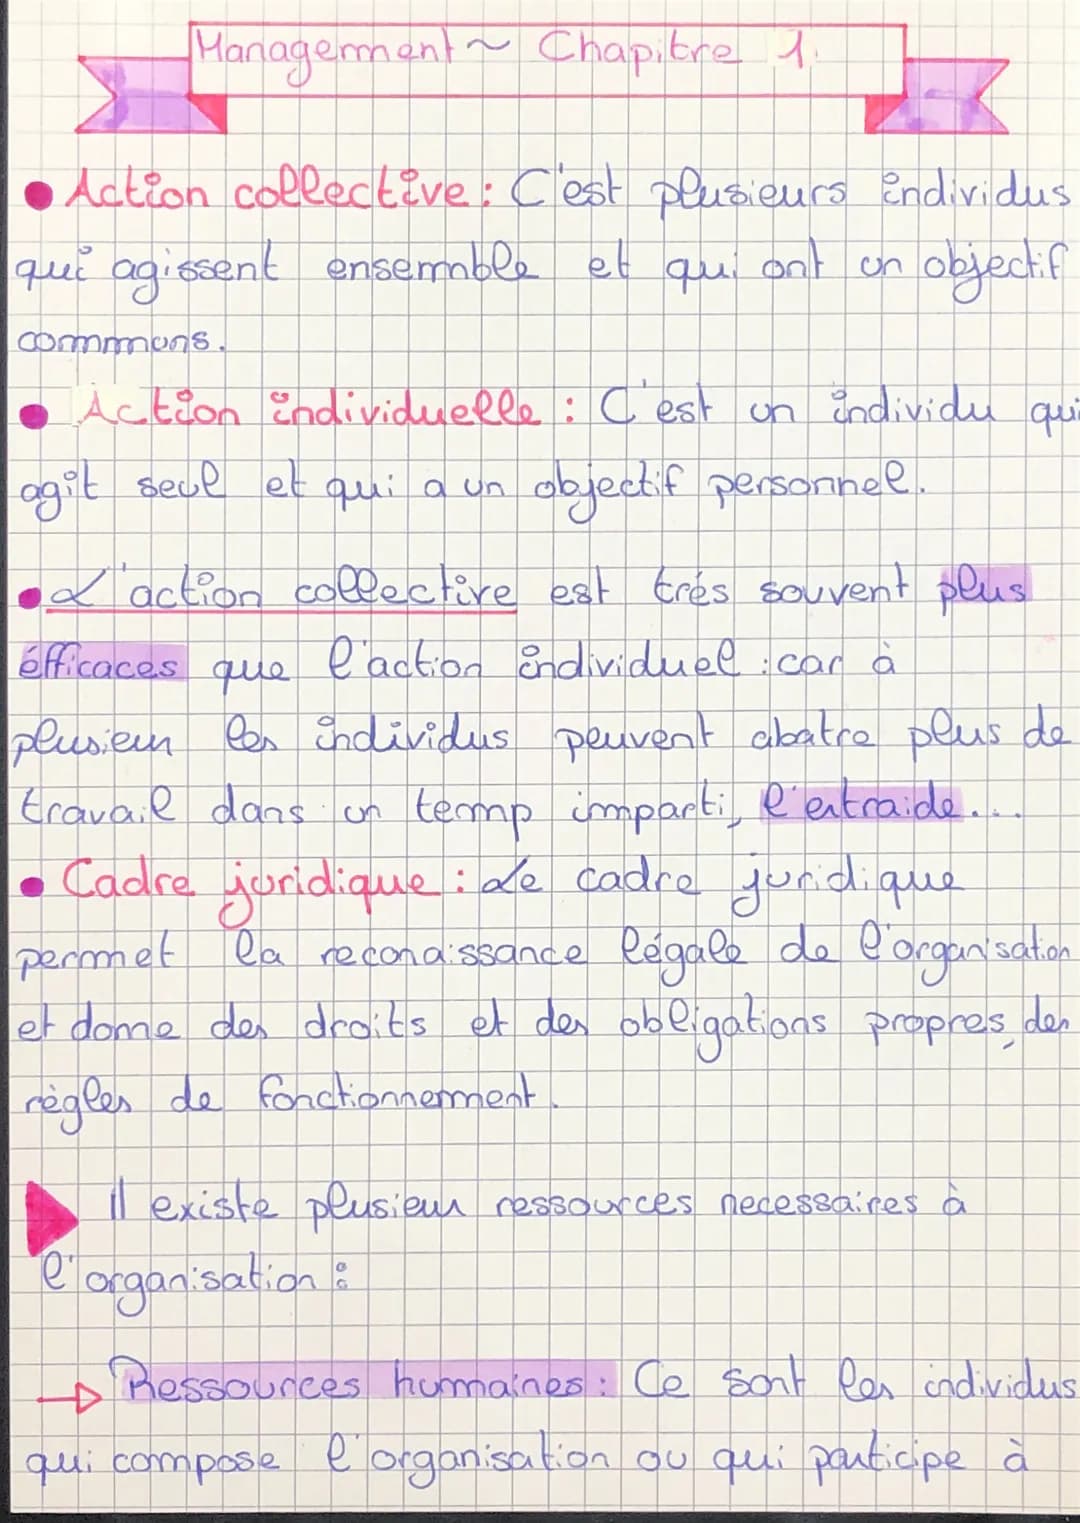 Management ~ Chapitre 1.
• Action collective : C'est plusieurs individus
qui agissent ensemble et qui ont un objectif
communs.
• Action individuelle : C'est un individu qui
agit seul et qui a un objectif personnel.
• L'action collective est très souvent plus
éfficaces que l'action individuel : car à
plusieur les individus peuvent abatre plus de
travail dans un temp imparti, l'entraide...
• Cadre juridique : Le cadre juridique
permet la reconaissance légale de l'organisation
et donne des droits et des obligations propres, des
règles de fonctionnement.
Il existe plusieur ressources necessaires à
l'organisation :
→ Ressources humaines : Ce sont les individus
qui compose l'organisation ou qui participe à